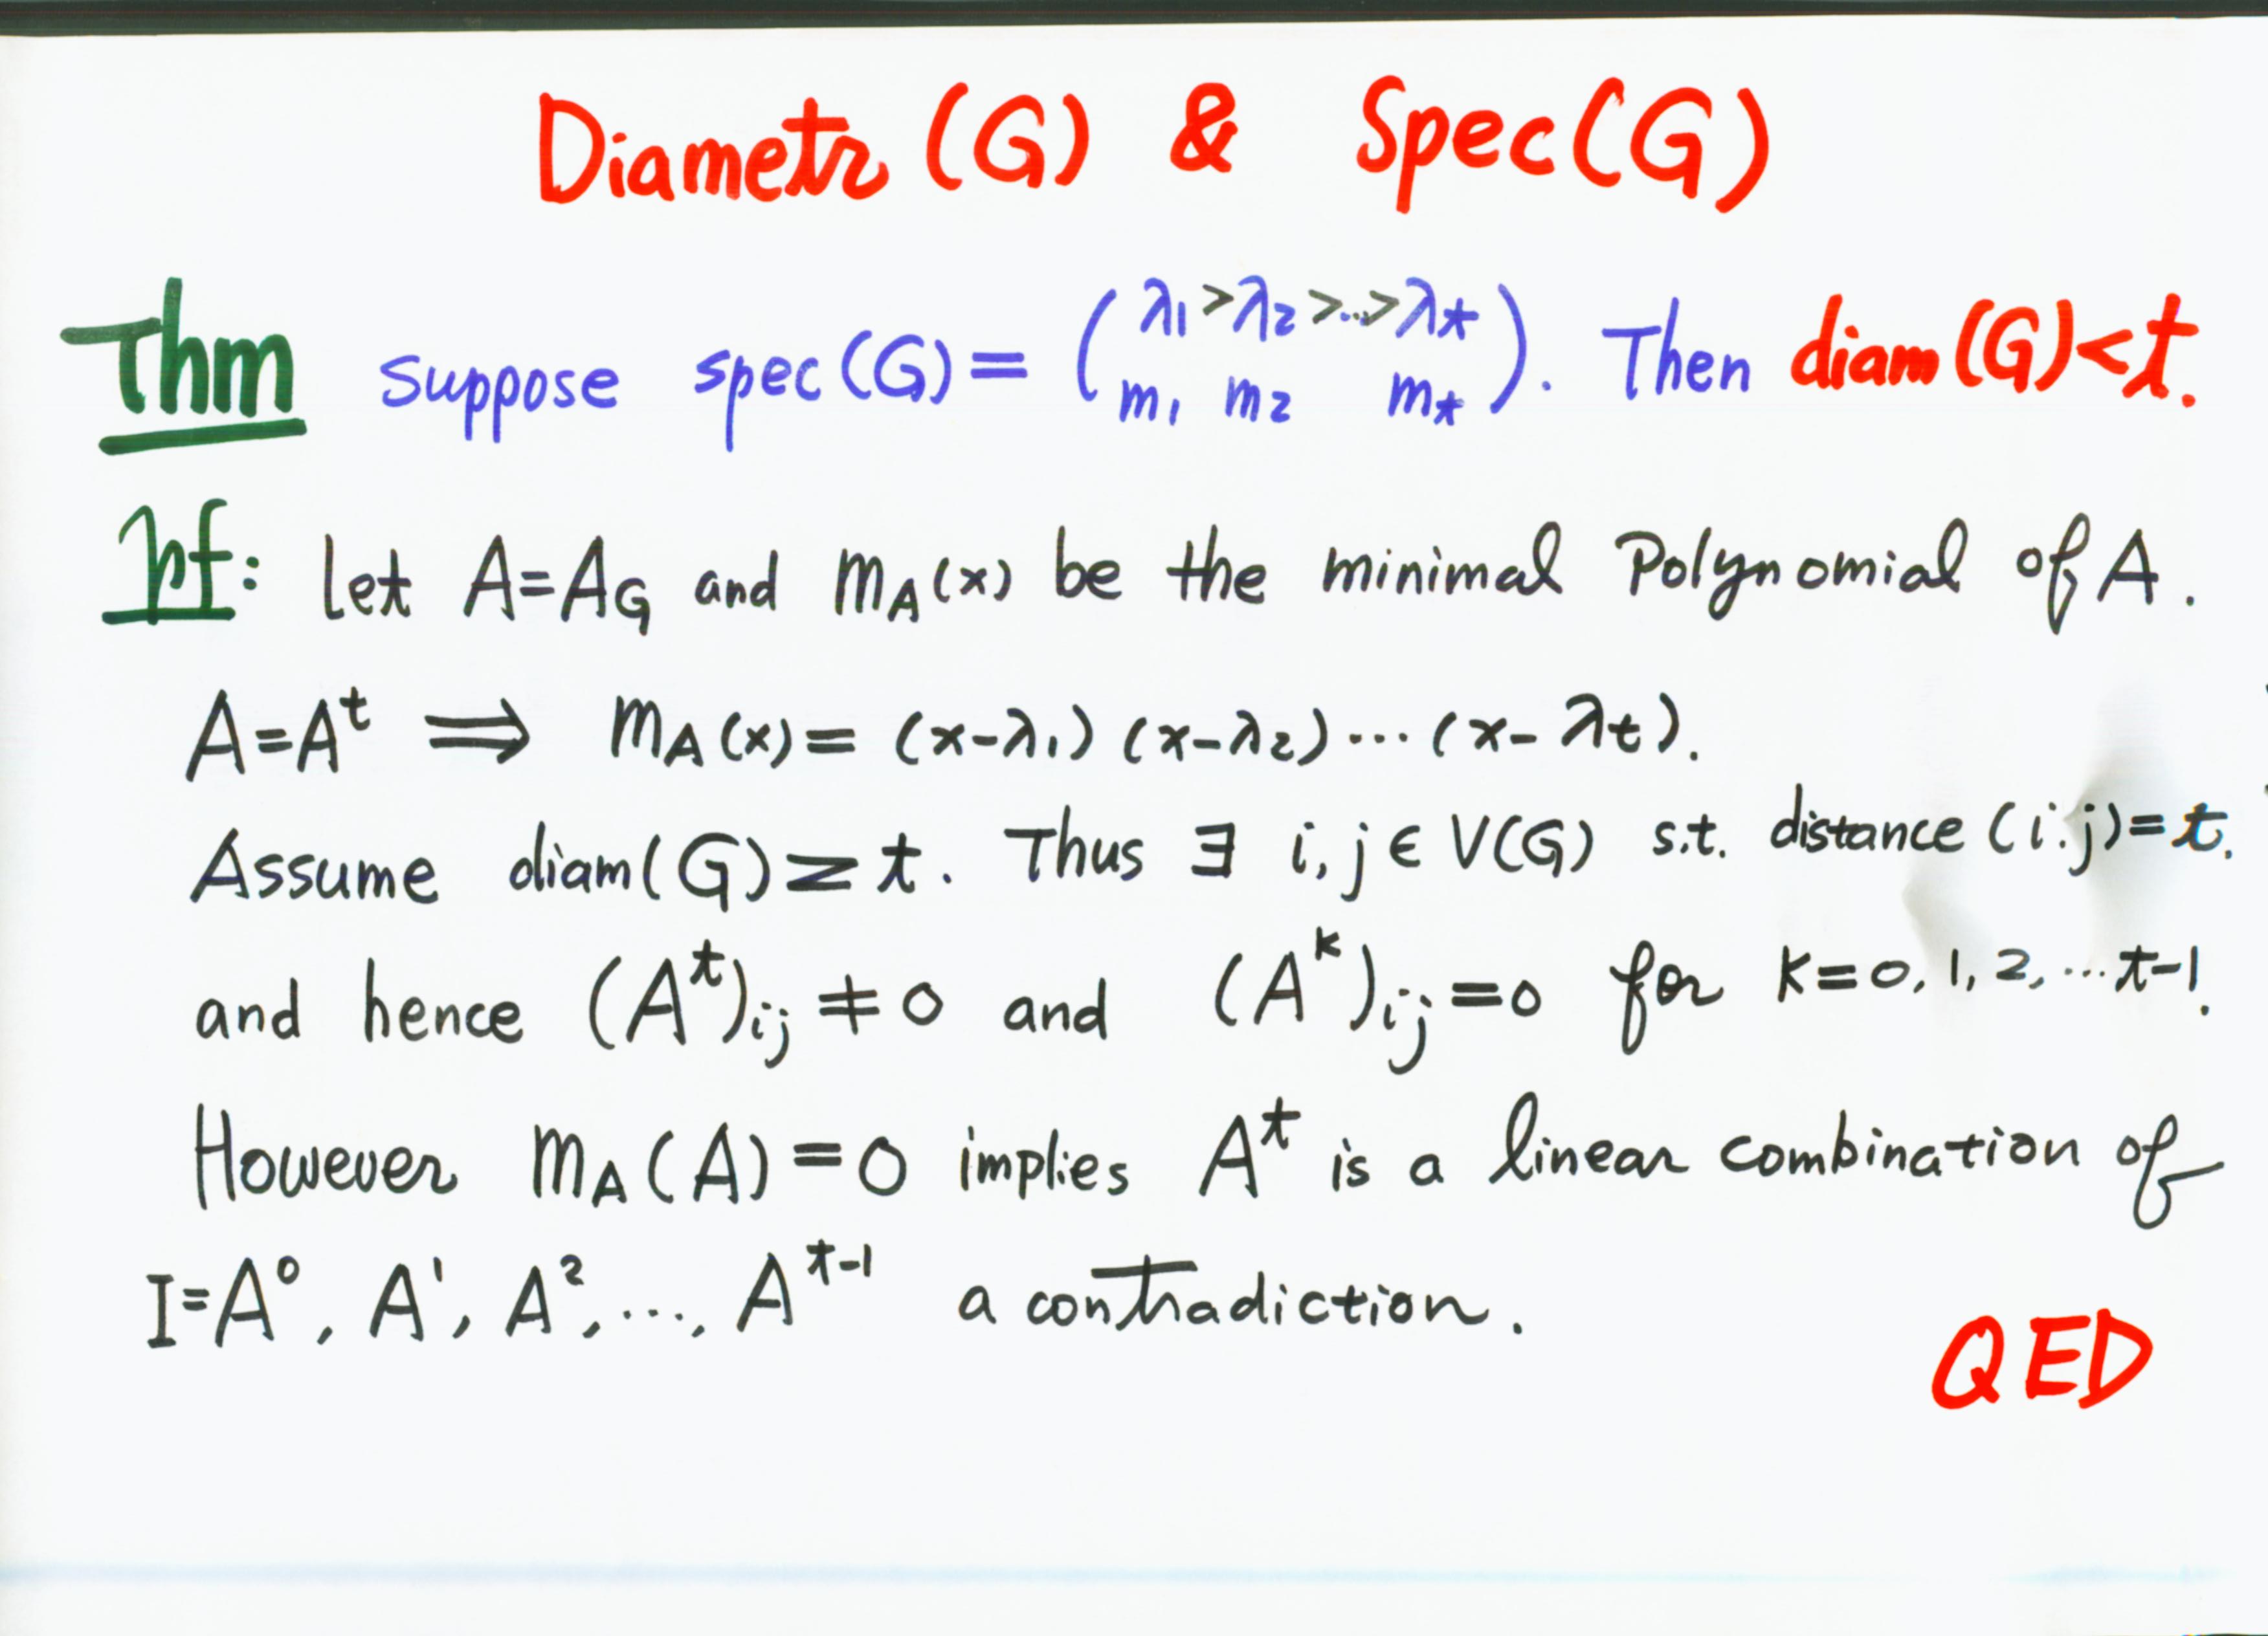 Diametr (G) & Spec(G)
Thm suppose spec(G) = (λ1 > λ2 > ... > λt
m1 m2 mt). Then diam(G) < t.
pf: Let A = AG and mA(x) be the minimal Polynomial of A.
A = A^t ⟹ mA(x) = (x-λ1)(x-λ2)···(x-λt).
Assume diam(G) ≥ t. Thus ∃ i, j ∈ V(G) s.t. distance (i.j) = t.
and hence (A^t)ij ≠ 0 and (A^k)ij = 0 for k = 0, 1, 2, ... t-1.
However mA(A) = 0 implies A^t is a linear combination of
I = A^0, A^1, A^2, ..., A^t-1 a contradiction.
QED